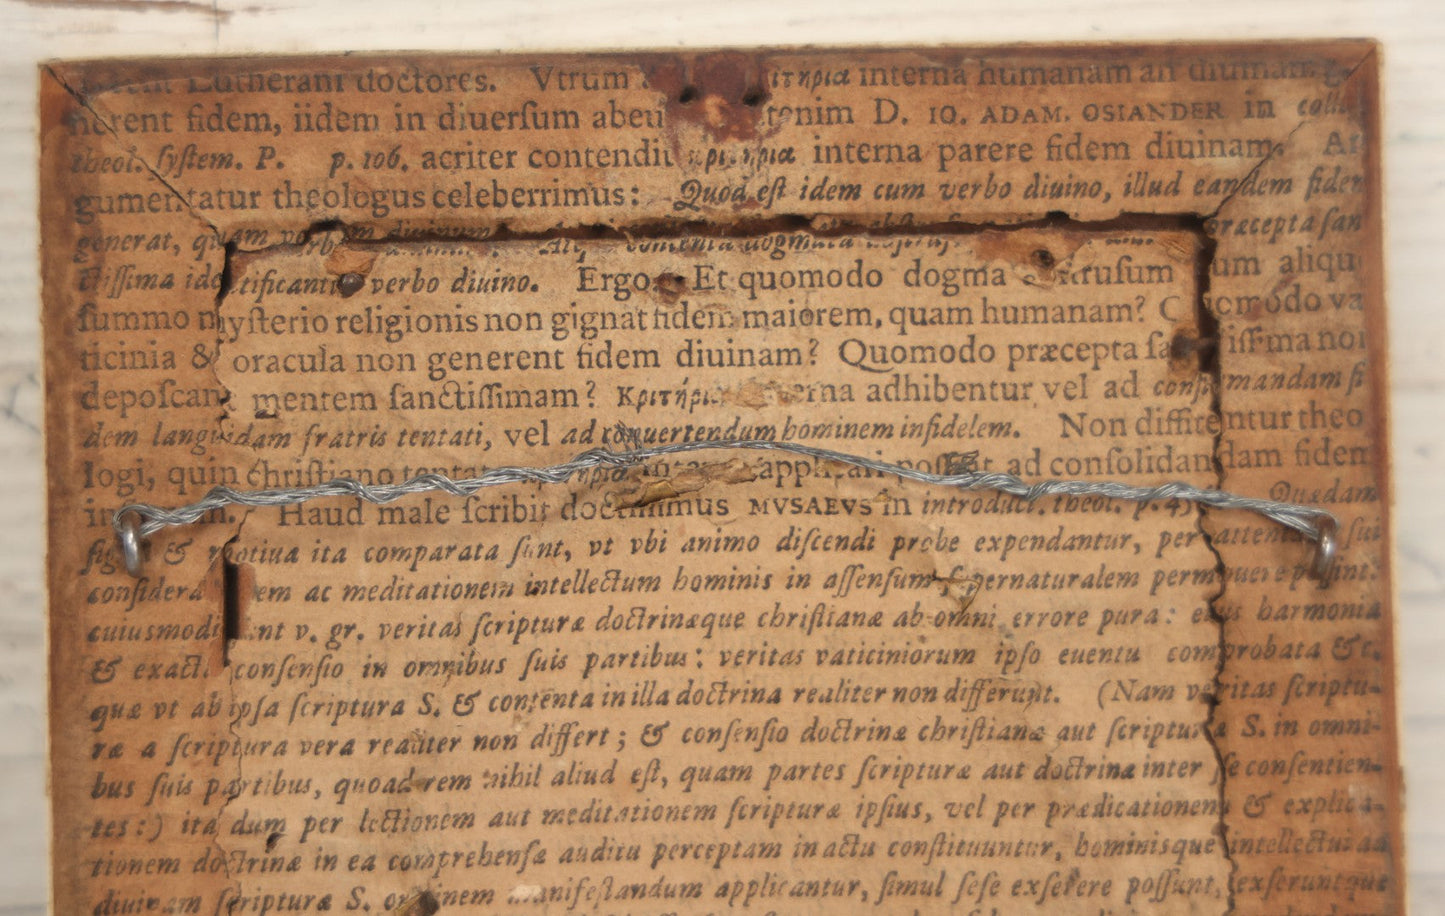 Lutherani doctores. Vtrum interna humanam an diuinam
fidem, iidem in diuerſum abeu etenim D. IO. ADAM. OSIANDER in
theol. ſyſtem. P. p. 106. acriter contendit κριτήρια interna parere fidem diuinam. Ar
gumentatur theologus celeberrimus: Quod eſt idem cum verbo diuino, illud eandem fidem
generat, quam verbum diuinum. contenta dogmata præcepta ſan
ctiſſima identificantur verbo diuino. Ergo. Et quomodo dogma um aliqu
ſummo myſterio religionis non gignat fidem maiorem, quam humanam? Quomodo va
ticinia & oracula non generent fidem diuinam? Quomodo præcepta non
depoſcant mentem ſanctiſſimam? Κριτήρια interna adhibentur vel ad confirmandam fi
dem languidam fratris tentati, vel ad conuertendum hominem infidelem. Non diffitentur theo
logi, quin chriſtiano applicari poſſint ad conſolidandam fidem
Haud male ſcribit doctiſſimus MVSAEVS in introduct. theol. p. Quædam
& motiua ita comparata ſunt, vt vbi animo diſcendi probe expendantur, ſui
ac meditationem intellectum hominis in aſſenſum ſupernaturalem permouere poſſint:
cuiusmodi ſunt v. gr. veritas ſcripturæ doctrinæque chriſtianæ ab omni errore pura: eius harmonia
& exacta conſenſio in omnibus ſuis partibus: veritas vaticiniorum ipſo euentu comprobata &c.
quæ vt ab ipſa ſcriptura S. & contenta in illa doctrina realiter non differunt. (Nam veritas ſcriptu-
ræ a ſcriptura vera realiter non differt; & conſenſio doctrinæ chriſtianæ aut ſcripturæ S. in omni-
bus ſuis partibus, quoad rem nihil aliud eſt, quam partes ſcripturæ aut doctrinæ inter ſe conſentien-
tes:) ita dum per lectionem aut meditationem ſcripturæ ipſius, vel per prædicationem & explica-
tionem doctrinæ in ea comprehenſæ auditu perceptam in actu conſtituuntur, hominisque intellectui ad
diuinam ſcripturæ S. originem manifeſtandum applicantur, ſimul ſeſe exſerere poſſunt, exſeruntque